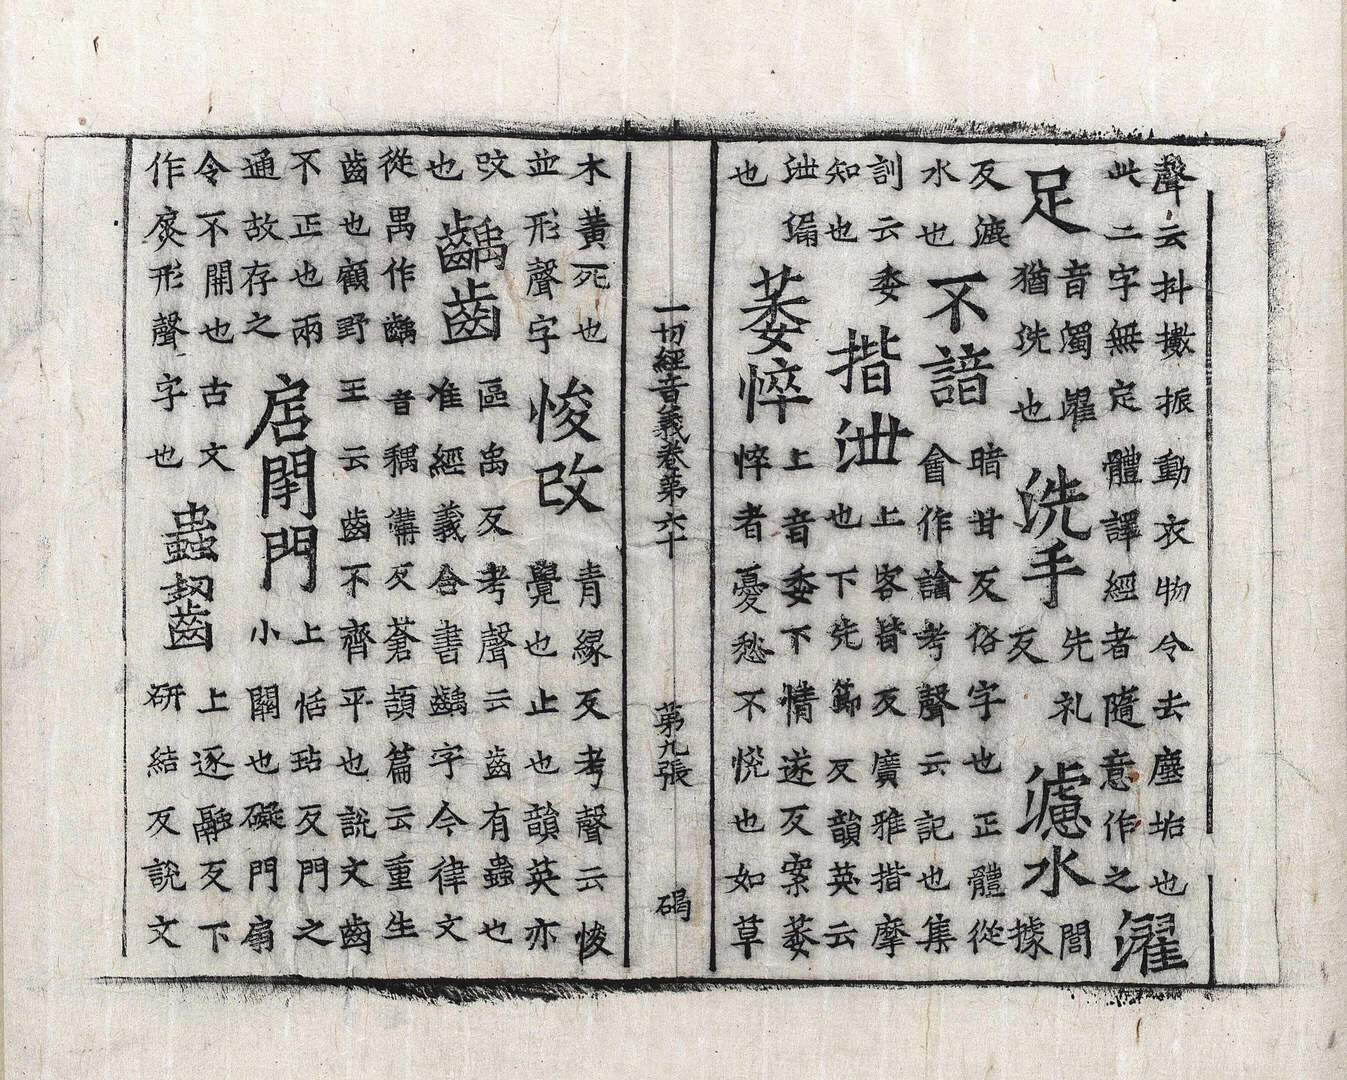 聲云抖擻振動衣物令去塵坫也
此二字無定體譯經者隨意作之
濯
足
音濁濯
猶洗也
洗手
先礼
反
濾水
閭
據
反漉
水也
不諳
暗甘反俗字也正體從
會作諳考聲云記也集
訓云委
知也
揩泄
上客皆反廣雅揩摩
也下先節反韻英云
泄漏
也
萎悴
上音委下情遂反案萎
悴者憂愁不悅也如草
一切經音義卷第六十 第九張 碣
木黃死也
並形聲字
悛改
青緣反考聲云悛
覺也止也韻英亦
改
也
齲齒
區禹反考聲云齒有蟲也
准經義合書齵字今律文
從禺作齵音耦搆反蒼頡篇云重生
齒也顧野王云齒不齊平也說文齒
不正也兩
通故存之
扂閉門
上恬玷反門之
小關也礙門扇
令不開也古文
作形聲字也
蟲齧
上逐融反下
研結反說文